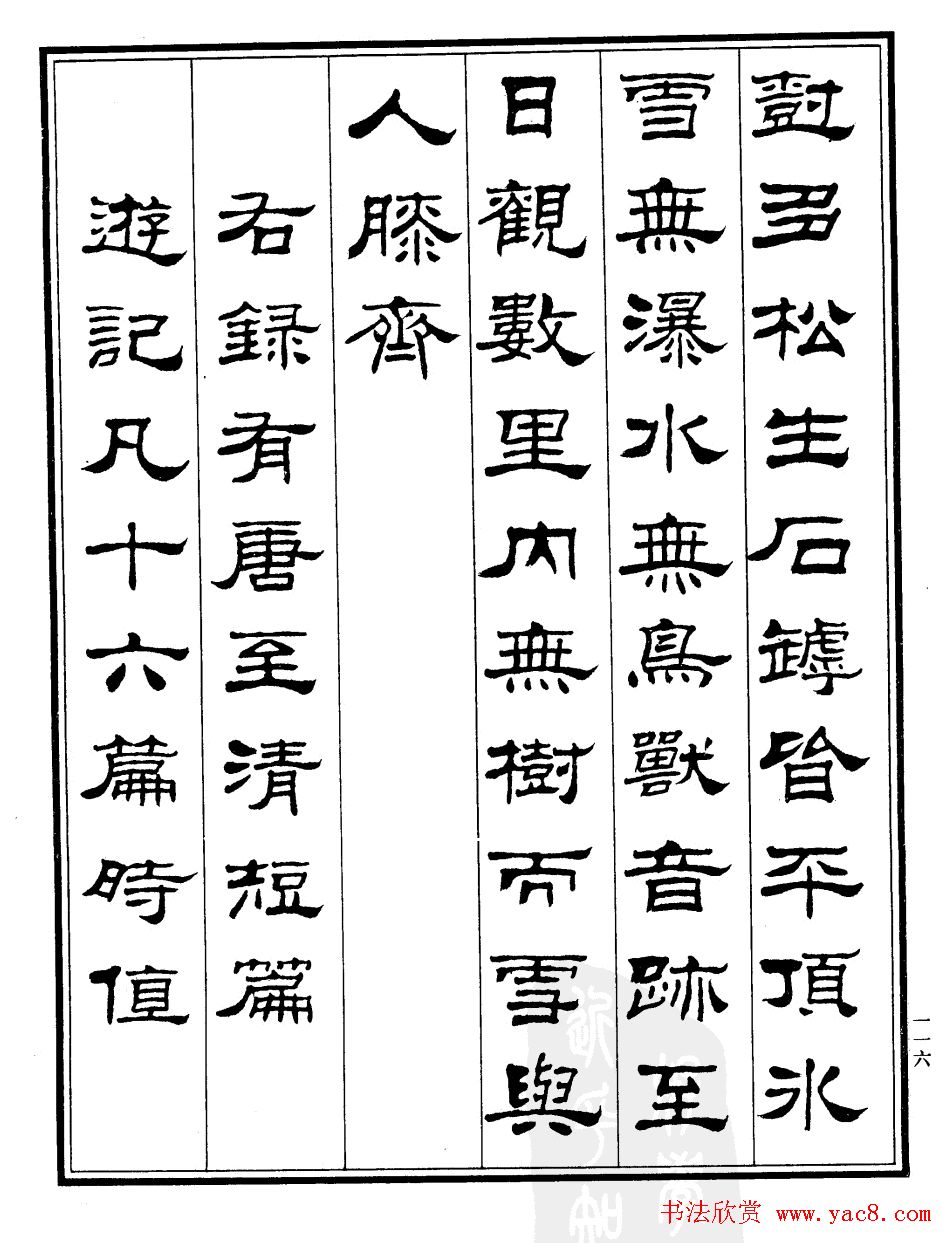 尌多松生石罅皆平頂冰
雪無瀑水無鳥獸音跡至
日觀數里內無樹而雪與
人膝齊
右録有唐至清短篇
遊記凡十六篇時值
一一六
书法欣赏 www.yac8.com